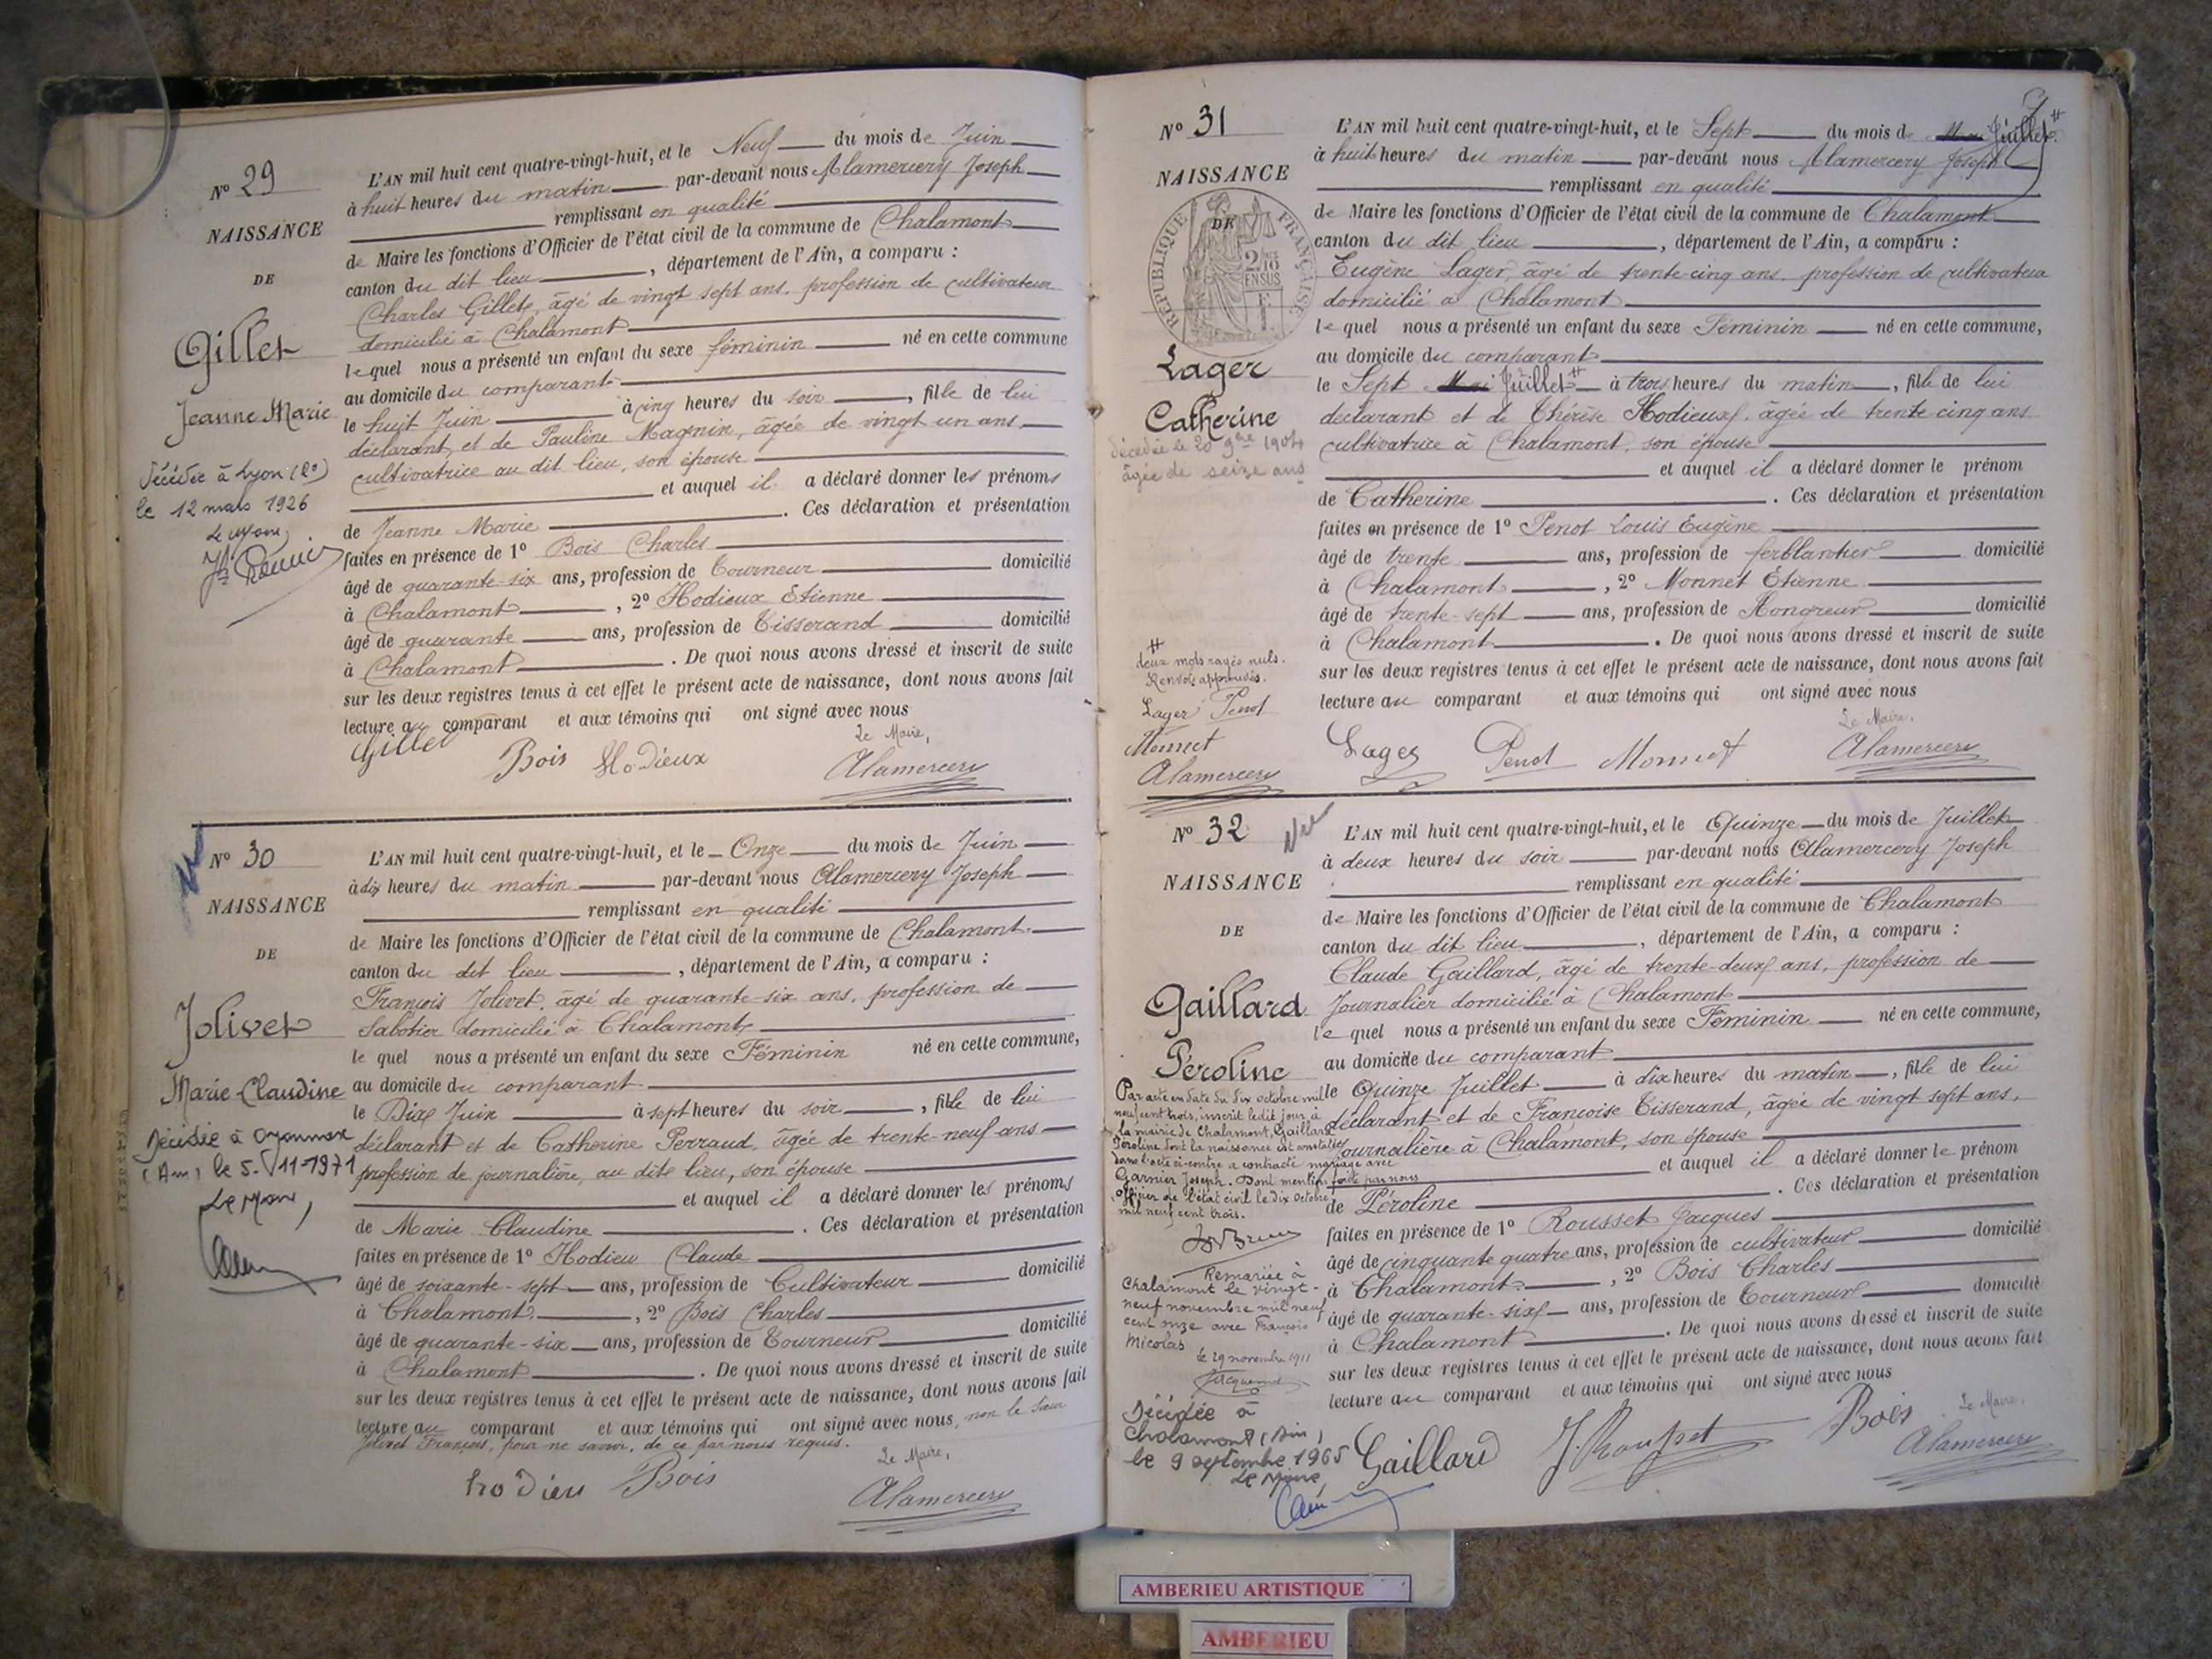 N° 29
NAISSANCE
DE
Gillet
Jeanne Marie
Décédée à Lyon (2e)
le 12 mars 1926
L'AN mil huit cent quatre-vingt-huit, et le Neuf du mois de Juin
à huit heures du matin par-devant nous Alamercery Joseph
remplissant en qualité
de Maire les fonctions d'Officier de l'état civil de la commune de Chalamont
canton du dit lieu, département de l'Ain, a comparu :
Charles Gillet, âgé de vingt sept ans, profession de cultivateur
domicilié à Chalamont
lequel nous a présenté un enfant du sexe féminin né en cette commune
au domicile du comparant
le huit Juin à cinq heures du soir, fille de lui
déclarant, et de Pauline Magnin, âgée de vingt un ans
cultivatrice au dit lieu, son épouse
et auquel il a déclaré donner les prénoms
de Jeanne Marie. Ces déclaration et présentation
faites en présence de 1° Bois Charles
âgé de quarante-six ans, profession de Tourneur domicilié
à Chalamont, 2° Hodieux Etienne
âgé de quarante ans, profession de Tisserand domicilié
à Chalamont. De quoi nous avons dressé et inscrit de suite
sur les deux registres tenus à cet effet le présent acte de naissance, dont nous avons fait
lecture au comparant et aux témoins qui ont signé avec nous
Le Maire,
Gillet Bois Hodieux Alamercery
N° 30
NAISSANCE
DE
Jolivet
Marie Claudine
Décédée à Oyonnax
(Ain) le 5-11-1971
Le Maire,
L'AN mil huit cent quatre-vingt-huit, et le Onze du mois de Juin
à dix heures du matin par-devant nous Alamercery Joseph
remplissant en qualité
de Maire les fonctions d'Officier de l'état civil de la commune de Chalamont
canton du dit lieu, département de l'Ain, a comparu :
François Jolivet, âgé de quarante-six ans, profession de
Sabotier domicilié à Chalamont
le quel nous a présenté un enfant du sexe Féminin né en cette commune,
au domicile du comparant
le Dix Juin à sept heures du soir, fille de lui
déclarant et de Catherine Perraud, âgée de trente-neuf ans
profession de journalière, au dite lieu, son épouse
et auquel il a déclaré donner les prénoms
de Marie Claudine. Ces déclaration et présentation
faites en présence de 1° Hodieu Claude
âgé de soixante-sept ans, profession de Cultivateur domicilié
à Chalamont, 2° Bois Charles
âgé de quarante-six ans, profession de Tourneur domicilié
à Chalamont. De quoi nous avons dressé et inscrit de suite
sur les deux registres tenus à cet effet le présent acte de naissance, dont nous avons fait
lecture au comparant et aux témoins qui ont signé avec nous, non le sieur
Jolivet François, pour ne savoir, de ce par nous requis.
Le Maire,
hodieu Bois Alamercery
N° 31
NAISSANCE
DE
RÉPUBLIQUE FRANÇAISE
2 10
EN SUS
Lager
Catherine
décédée le 20 9bre 1904
âgée de seize ans
deux mots rayés nuls.
Renvois approuvés.
Lager Penot
Monnet
Alamercery
L'AN mil huit cent quatre-vingt-huit, et le Sept du mois de Juillet
à huit heures du matin par-devant nous Alamercery Joseph
remplissant en qualité
de Maire les fonctions d'Officier de l'état civil de la commune de Chalamont
canton du dit lieu, département de l'Ain, a comparu :
Eugène Lager, âgé de trente-cinq ans, profession de cultivateur
domicilié à Chalamont
le quel nous a présenté un enfant du sexe Féminin né en cette commune,
au domicile du comparant
le Sept Mai Juillet à trois heures du matin, fille de lui
déclarant et de Thérèse Hodieux, âgée de trente cinq ans
cultivatrice à Chalamont, son épouse
et auquel il a déclaré donner le prénom
de Catherine. Ces déclaration et présentation
faites en présence de 1° Penot Louis Eugène
âgé de trente ans, profession de ferblantier domicilié
à Chalamont, 2° Monnet Étienne
âgé de trente-sept ans, profession de Hongreur domicilié
à Chalamont. De quoi nous avons dressé et inscrit de suite
sur les deux registres tenus à cet effet le présent acte de naissance, dont nous avons fait
lecture au comparant et aux témoins qui ont signé avec nous
Le Maire,
Lager Penot Monnet Alamercery
N° 32
NAISSANCE
DE
Gaillard
Péroline
Par acte en date du dix octobre mil
neuf cent trois, inscrit ledit jour à
la mairie de Chalamont, Gaillard
Péroline dont la naissance est constatée
dans l'acte ci-contre a contracté mariage avec
Garnier Joseph. Dont mention faite par nous
officier de l'état civil le dix octobre
mil neuf cent trois.
Remariée à
Chalamont le vingt-
neuf novembre mil neuf
cent onze avec François
Micolas
le 29 novembre 1911
Décédée à
Chalamont (Ain)
le 9 septembre 1965
Le Maire,
L'AN mil huit cent quatre-vingt-huit, et le Quinze du mois de Juillet
à deux heures du soir par-devant nous Alamercery Joseph
remplissant en qualité
de Maire les fonctions d'Officier de l'état civil de la commune de Chalamont
canton du dit lieu, département de l'Ain, a comparu :
Claude Gaillard, âgé de trente-deux ans, profession de
Journalier domicilié à Chalamont
le quel nous a présenté un enfant du sexe Féminin né en cette commune,
au domicile du comparant
le Quinze Juillet à dix heures du matin, fille de lui
déclarant et de Françoise Tisserand, âgée de vingt sept ans,
journalière à Chalamont, son épouse
et auquel il a déclaré donner le prénom
de Péroline. Ces déclaration et présentation
faites en présence de 1° Rousset Jacques
âgé de cinquante quatre ans, profession de cultivateur domicilié
à Chalamont, 2° Bois Charles
âgé de quarante-six ans, profession de Tourneur domicilié
à Chalamont. De quoi nous avons dressé et inscrit de suite
sur les deux registres tenus à cet effet le présent acte de naissance, dont nous avons fait
lecture au comparant et aux témoins qui ont signé avec nous
Le Maire,
Gaillard J. Rousset Bois Alamercery
AMBERIEU ARTISTIQUE
AMBERIEU